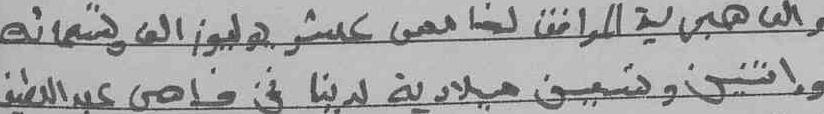 والف هجرية الموافق لخامس عشر يوليوز الف وتسعمائه
واثنين وتسعين ميلادية لدينا نحن قاضي عبد اللطيف